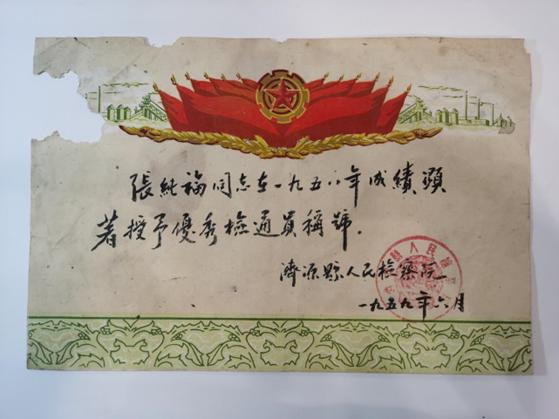 張純福同志在一九五八年成績顕
著授予優秀檢通員稱號.
濟源縣人民檢察院
一九五九年六月